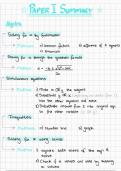 PAPER I SUMMARY
Algebra
Solving for x by factorisation
Methods: ① Common factors ③ difference of 2 squares
② Trinomials
Solving for x through the quadratic formula
Method: x = -b ± √b² - 4ac
2a
Simultaneous equations
Method: ① Make x OR y the subject
② Substitute y OR x
into the other equation and solve
③ Substitute answer from 2 into original eqn
to solve the other variable
Inequalities
Methods: ① Number line ② graph
Solving for x using surds
Method: ① square both sides of the eqn &
solve
② Check if x values are valid by means
of